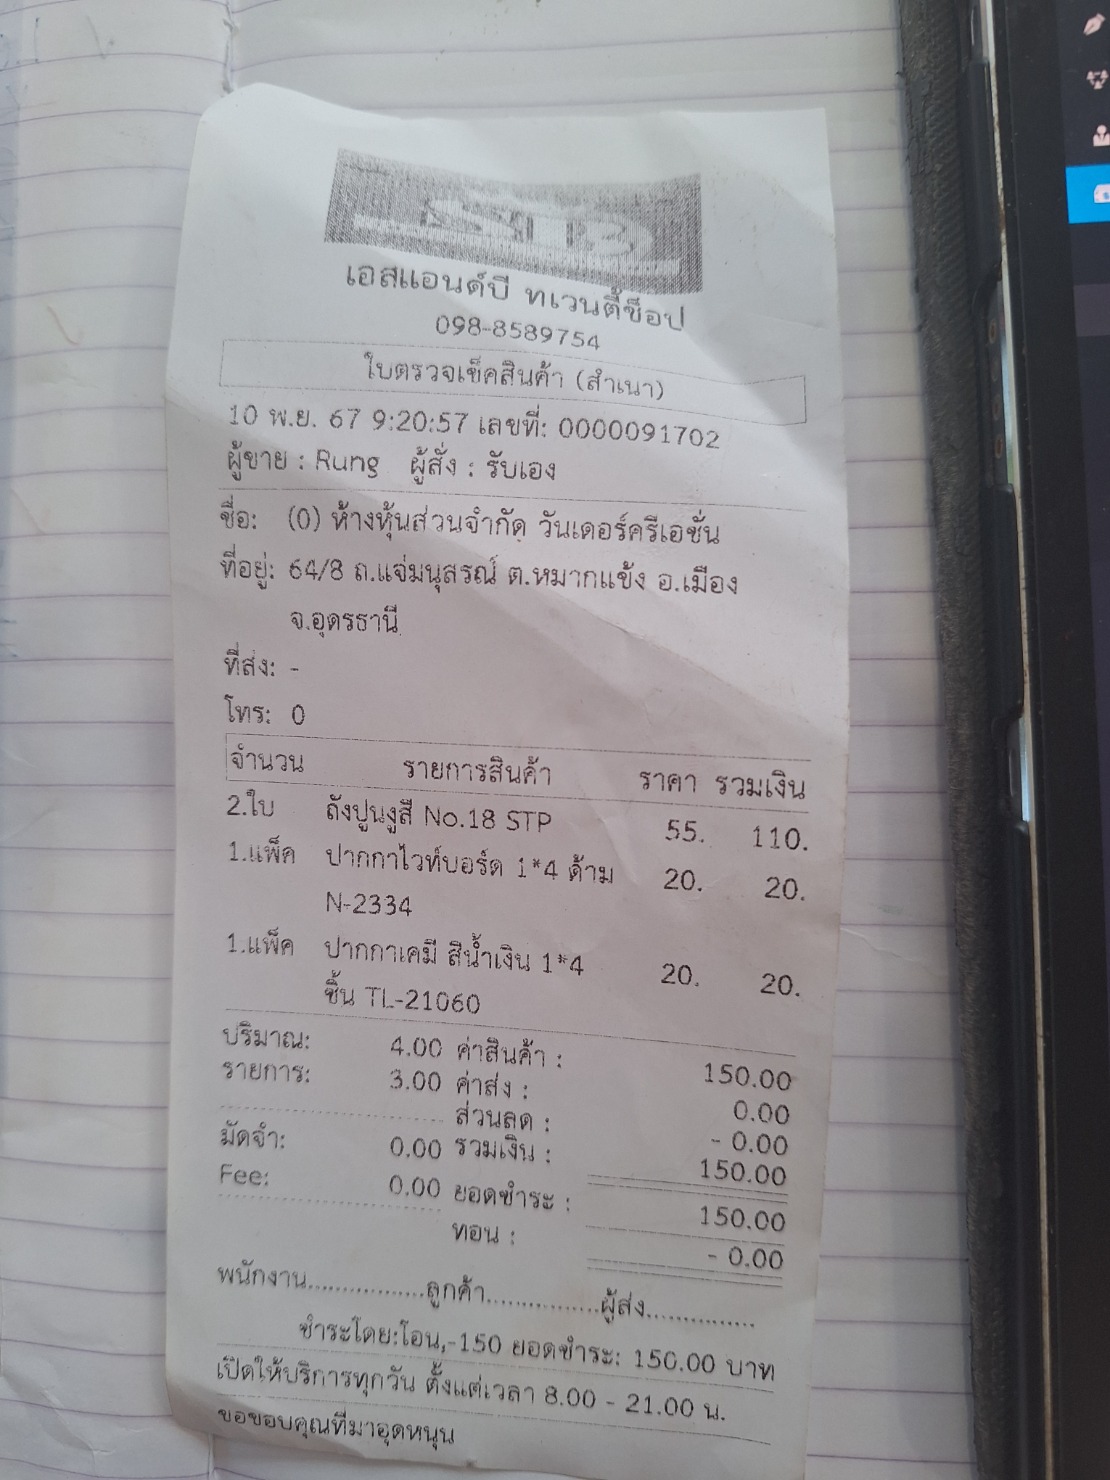 เอสแอนด์บี ทเวนตี้ช็อป
098-8589754
ใบตรวจเช็คสินค้า (สำเนา)
10 พ.ย. 67 9:20:57 เลขที่: 0000091702
ผู้ขาย : Rung ผู้สั่ง : รับเอง
ชื่อ: (0) ห้างหุ้นส่วนจำกัด วันเดอร์ครีเอชั่น
ที่อยู่: 64/8 ถ.แจ่มนุสรณ์ ต.หมากแข้ง อ.เมือง
จ.อุดรธานี
ที่ส่ง: -
โทร: 0
จำนวน รายการสินค้า ราคา รวมเงิน
2.ใบ ถังปูนงูสี No.18 STP 55. 110.
1.แพ็ค ปากกาไวท์บอร์ด 1*4 ด้าม 20. 20.
N-2334
1.แพ็ค ปากกาเคมี สีน้ำเงิน 1*4 20. 20.
ชิ้น TL-21060
ปริมาณ: 4.00 ค่าสินค้า : 150.00
รายการ: 3.00 ค่าส่ง : 0.00
ส่วนลด : - 0.00
มัดจำ: 0.00 รวมเงิน : 150.00
Fee: 0.00 ยอดชำระ : 150.00
ทอน : - 0.00
พนักงาน...............ลูกค้า...............ผู้ส่ง...............
ชำระโดย:โอน,-150 ยอดชำระ: 150.00 บาท
เปิดให้บริการทุกวัน ตั้งแต่เวลา 8.00 - 21.00 น.
ขอขอบคุณที่มาอุดหนุน